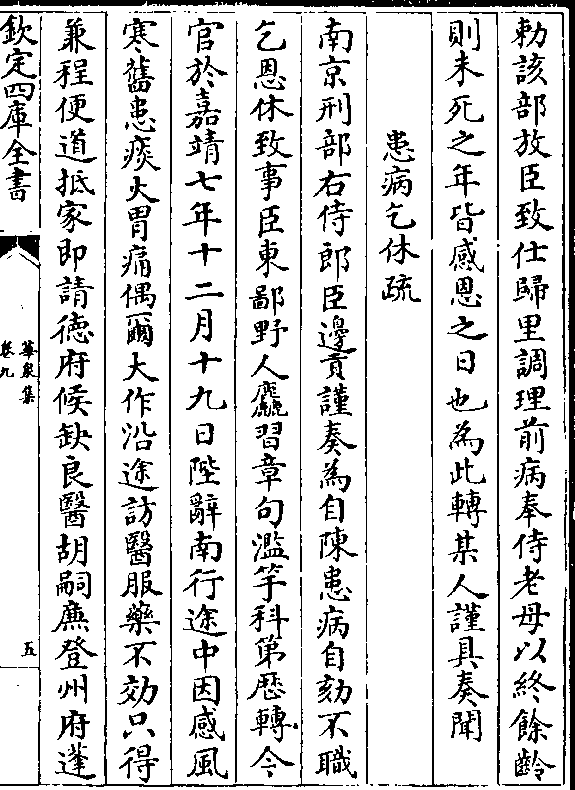 勅該部放臣致仕歸里調理前病奉侍老母以終餘齡
則未死之年皆感恩之日也為此轉某人謹具奏聞
患病乞休疏
南京刑部右侍郎臣邊貢謹奏為自陳患病自劾不職
乞恩休致事臣東鄙野人麤習章句濫竽科第歴轉今
官於嘉靖七年十二月十九日陛辭南行途中因感風
寒舊患痰火胃痛偶爾大作沿途訪醫服藥不効只得
兼程便道抵家即請德府候缺良醫胡嗣廉登州府蓬
欽定四庫全書
華泉集
卷九
五